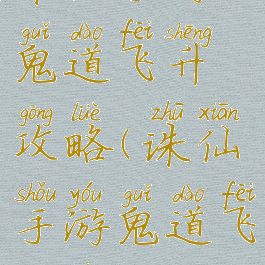 guǐ dào fēi shēng
鬼道飞升
gōng lüè zhū xiān
攻略(诛仙
shǒu yóu guǐ dào fēi
手游鬼道飞